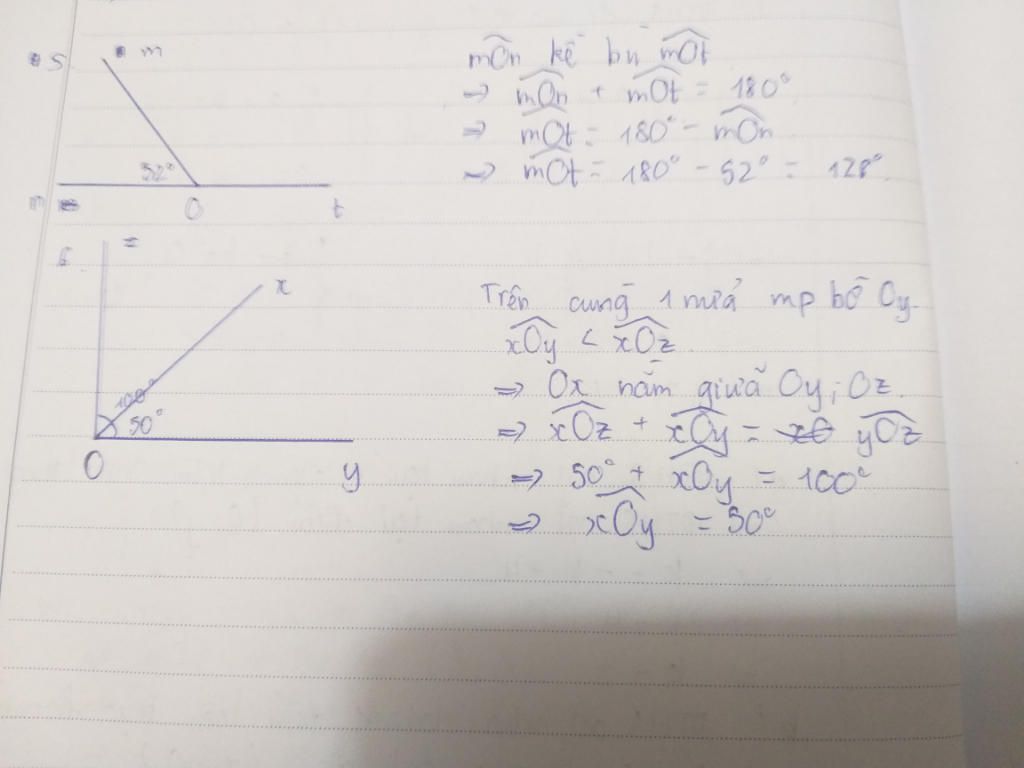 5 m
52°
n O t
m͡On kề bù m͡Ot
=> m͡On + m͡Ot = 180°
=> m͡Ot = 180° - m͡On
=> m͡Ot = 180° - 52° = 128°
6 z
x
100°
50°
O y
Trên cùng 1 nửa mp bờ Oy.
x͡Oy < x͡Oz
=> Ox nằm giữa Oy; Oz.
=> x͡Oz + x͡Oy = y͡Oz
=> 50° + x͡Oy = 100°
=> x͡Oy = 50°